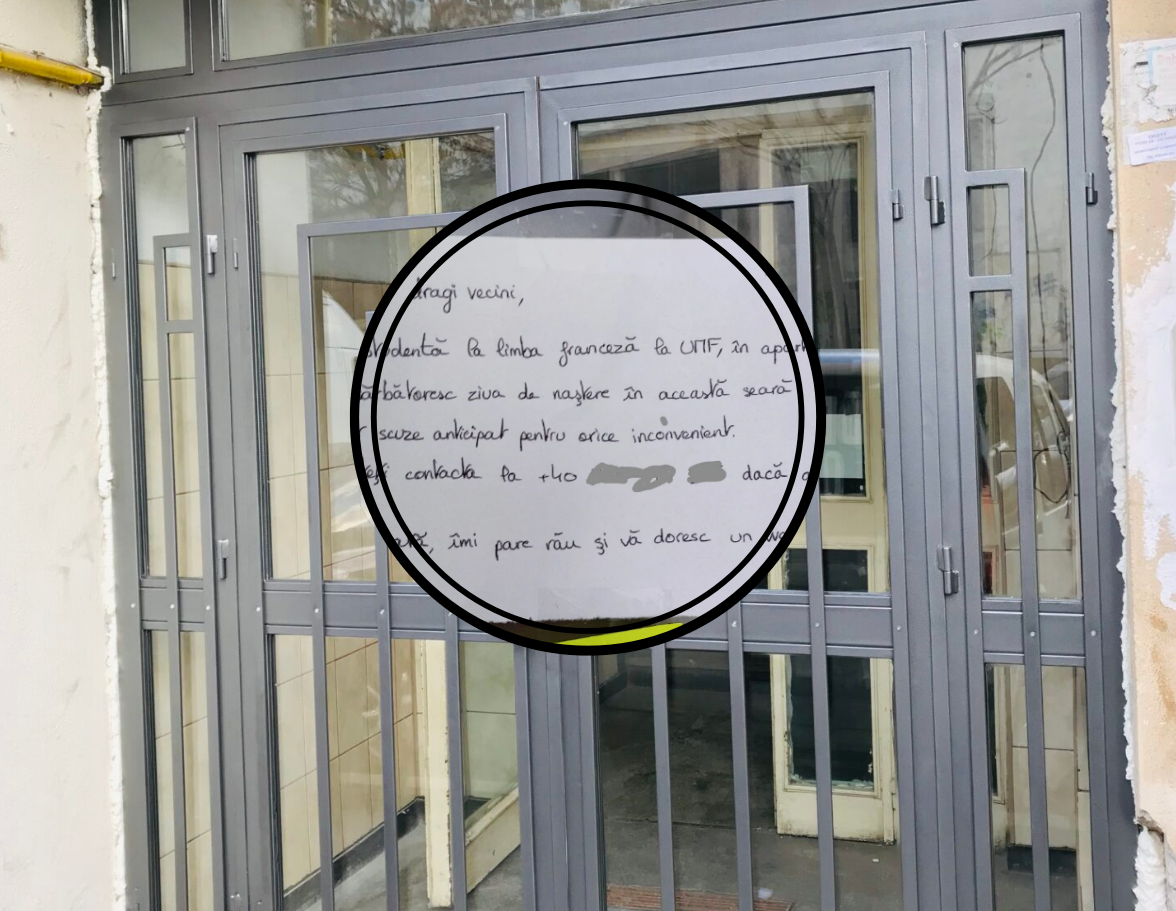 dragi vecini,
studentă la limba franceză la UMF, în
ziua de naștere în această seară
scuze anticipat pentru orice inconvenient.
contacta la +40 dacă
îmi pare rău și vă doresc un